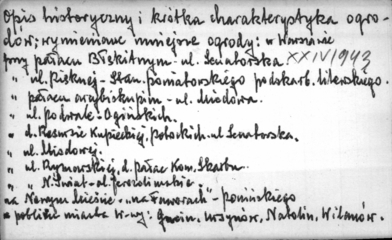 Opis historyczny i krótka charakterystyka ogro-
dów; wymienione mniejsze ogrody: w Warszawie
przy pałacu Błękitnym - ul. Senatorska XXIV/943
" ul. Pięknej - Stan. Poniatowskiego podskarb. litewskiego.
" pałacu arcybiskupim - ul. Miodowa.
" ul. Podwale - Ogińskich.
" d. Resursie Kupieckiej, Potockich ul. Senatorska.
" ul. Miodowej.
" ul. Rymarskiej, d. pałac Kom. Skarbu.
" " N. Świat - al. Jerozolimskie
na Nowym Mieście - na Faworach - Ponińskiego
w pobliżu miasta W-wy: Gucin, Ursynów, Natolin, Wilanów.